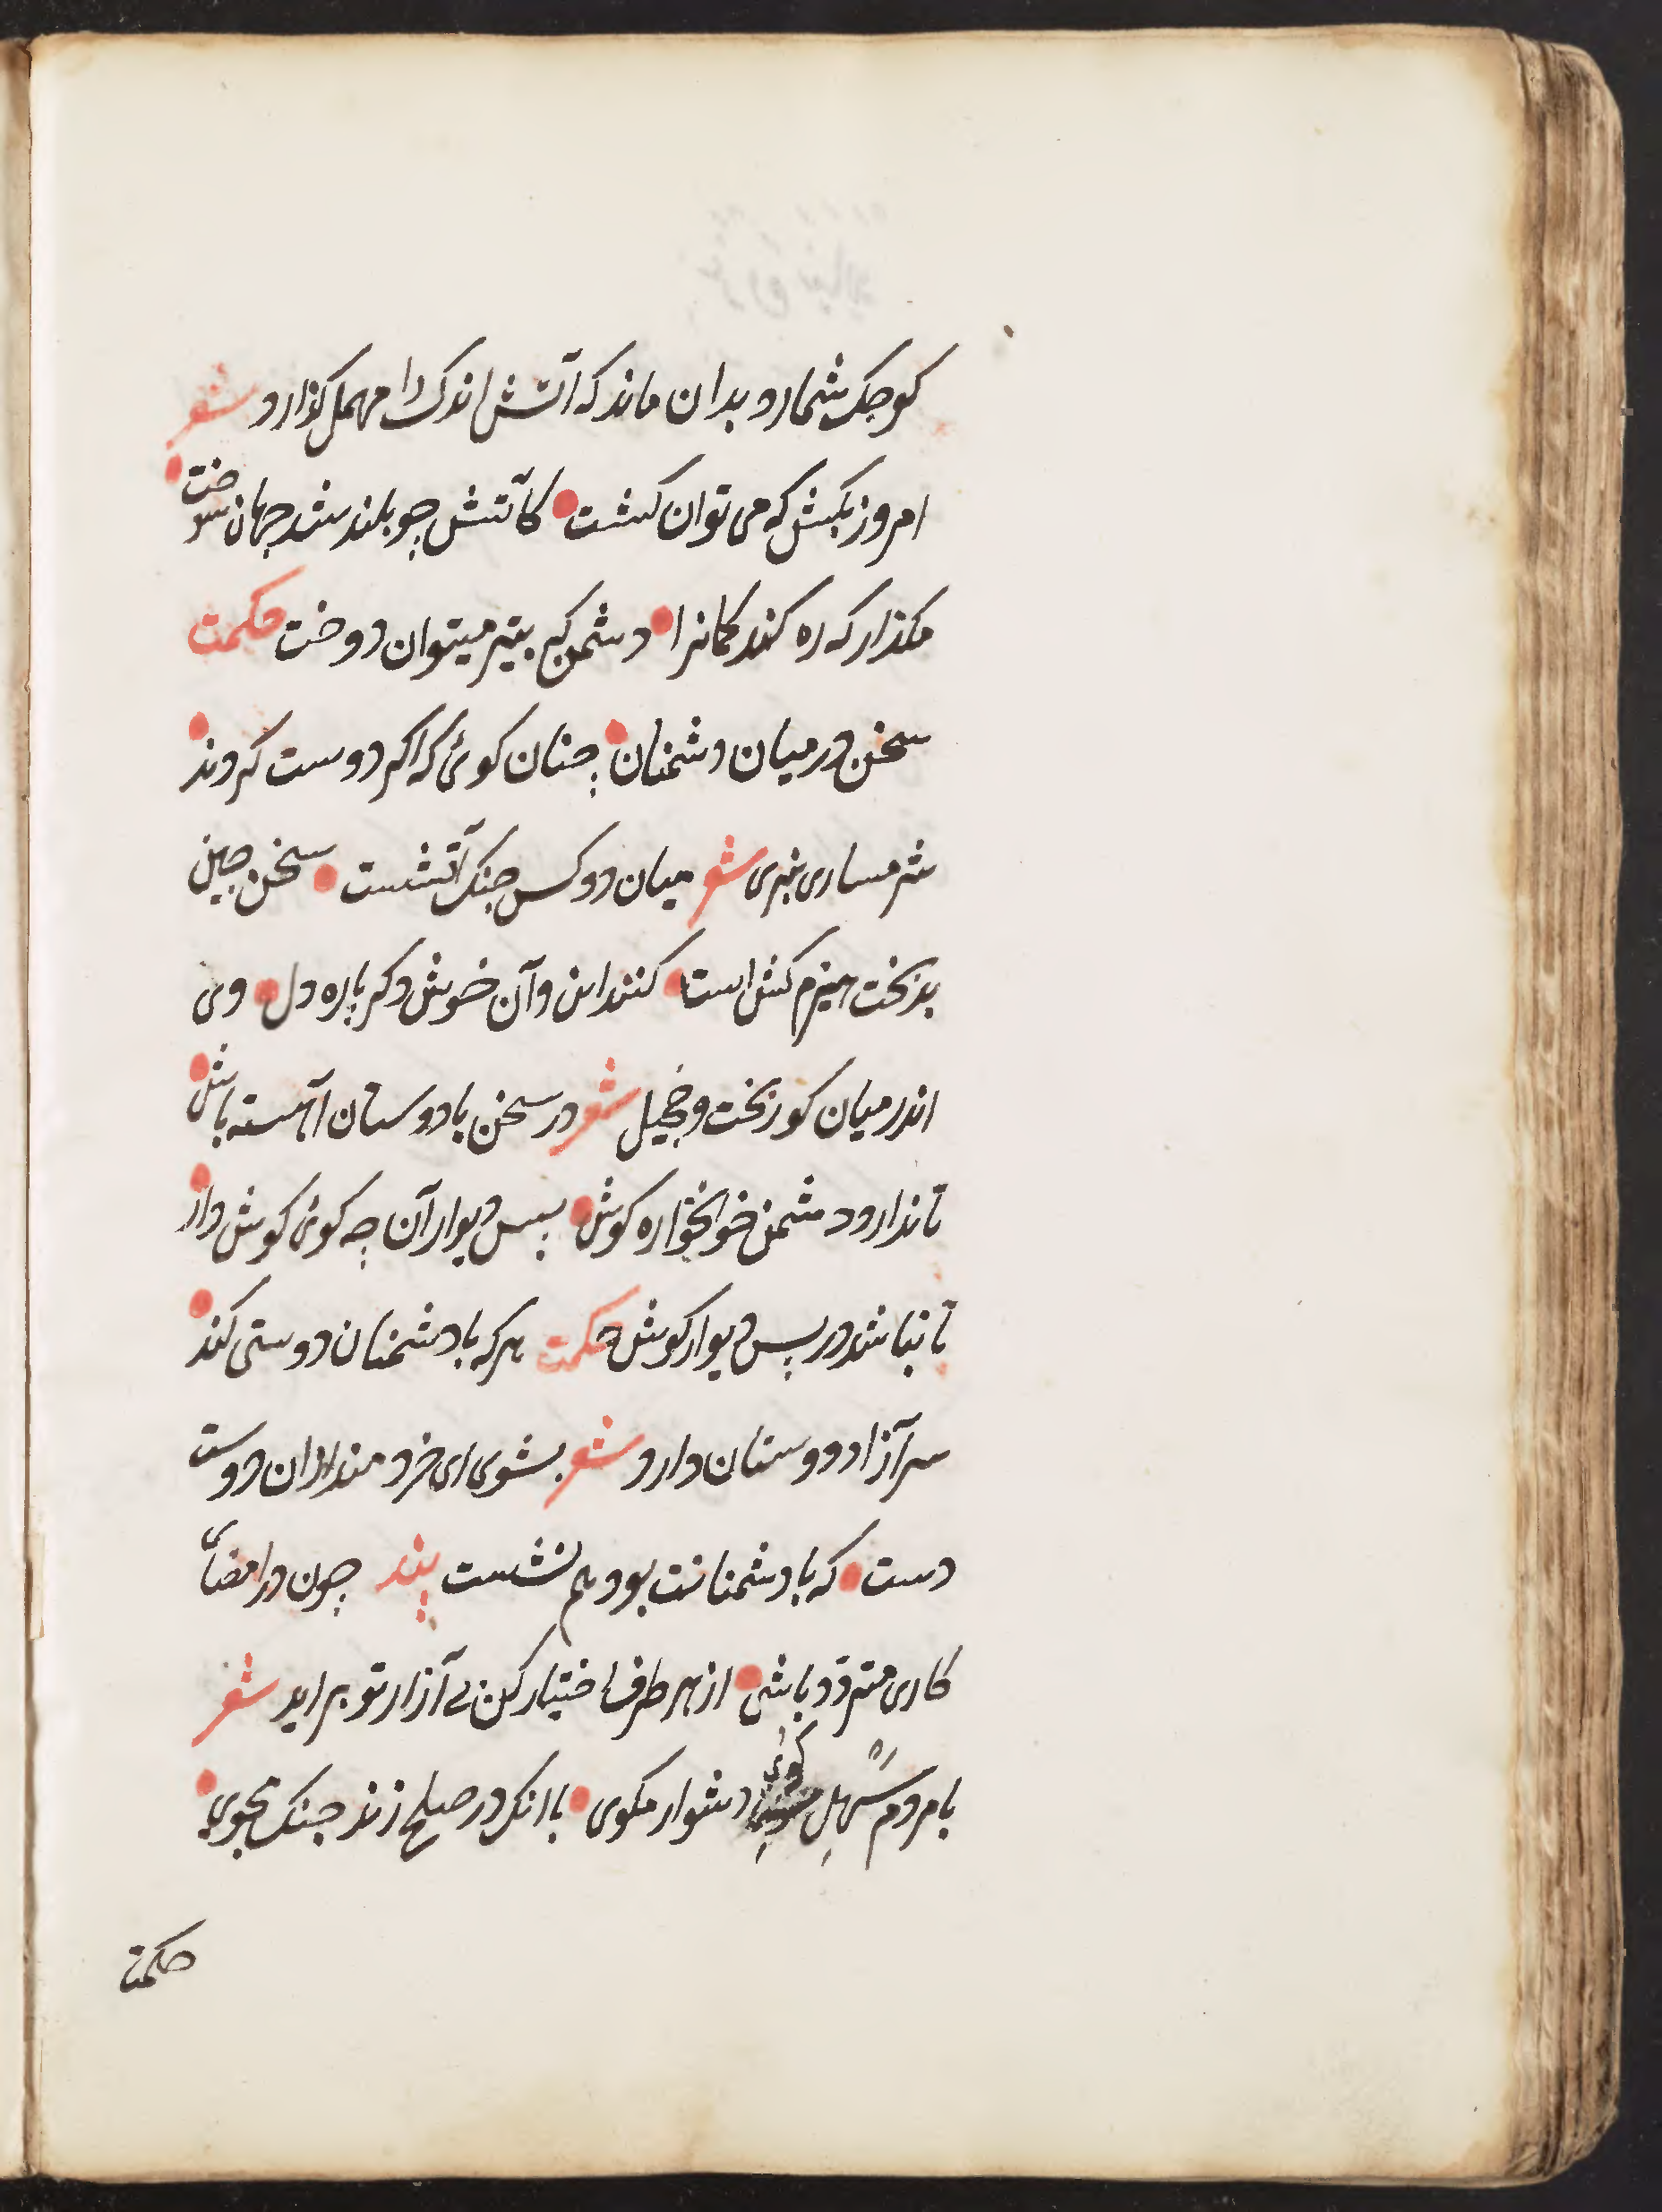 کوچک شمارد بدان ماند که آتش اندک را مهمل گذارد شعر
امروز بکش که می توان کشت کآتش چو بلند شد جهان سوخت
مگذار که زه کند کمانرا دشمن که بتیر میتوان دوخت حکمت
سخن در میان دشمنان چنان گوئی که اگر دوست گردند
شرمساری نبری شعر میان دو کس جنگ آتشست سخن چین
بدبخت هیزم کش است کنند این و آن خوش دگر باره دل وی
اندر میان کوربخت و خجیل شعر در سخن با دوستان آهسته باش
تا ندارد دشمن خونخواره گوش پیس دیوار آن چه گوئی گوش دار
تا نباشد در پس دیوار گوش حکمت هر که با دشمنان دوستی کند
سر آزار دوستان دارد شعر بشوی ای خردمند ازان دوست
دست که با دشمنانت بود هم نشست پند چون در امضای
کاری متردد باشی از هر طرف اختیار کن بی آزار تو براید شعر
با مردم سهل گوی دشوار مگوی با انک در صلح زند جنگ مجوی
حکمت